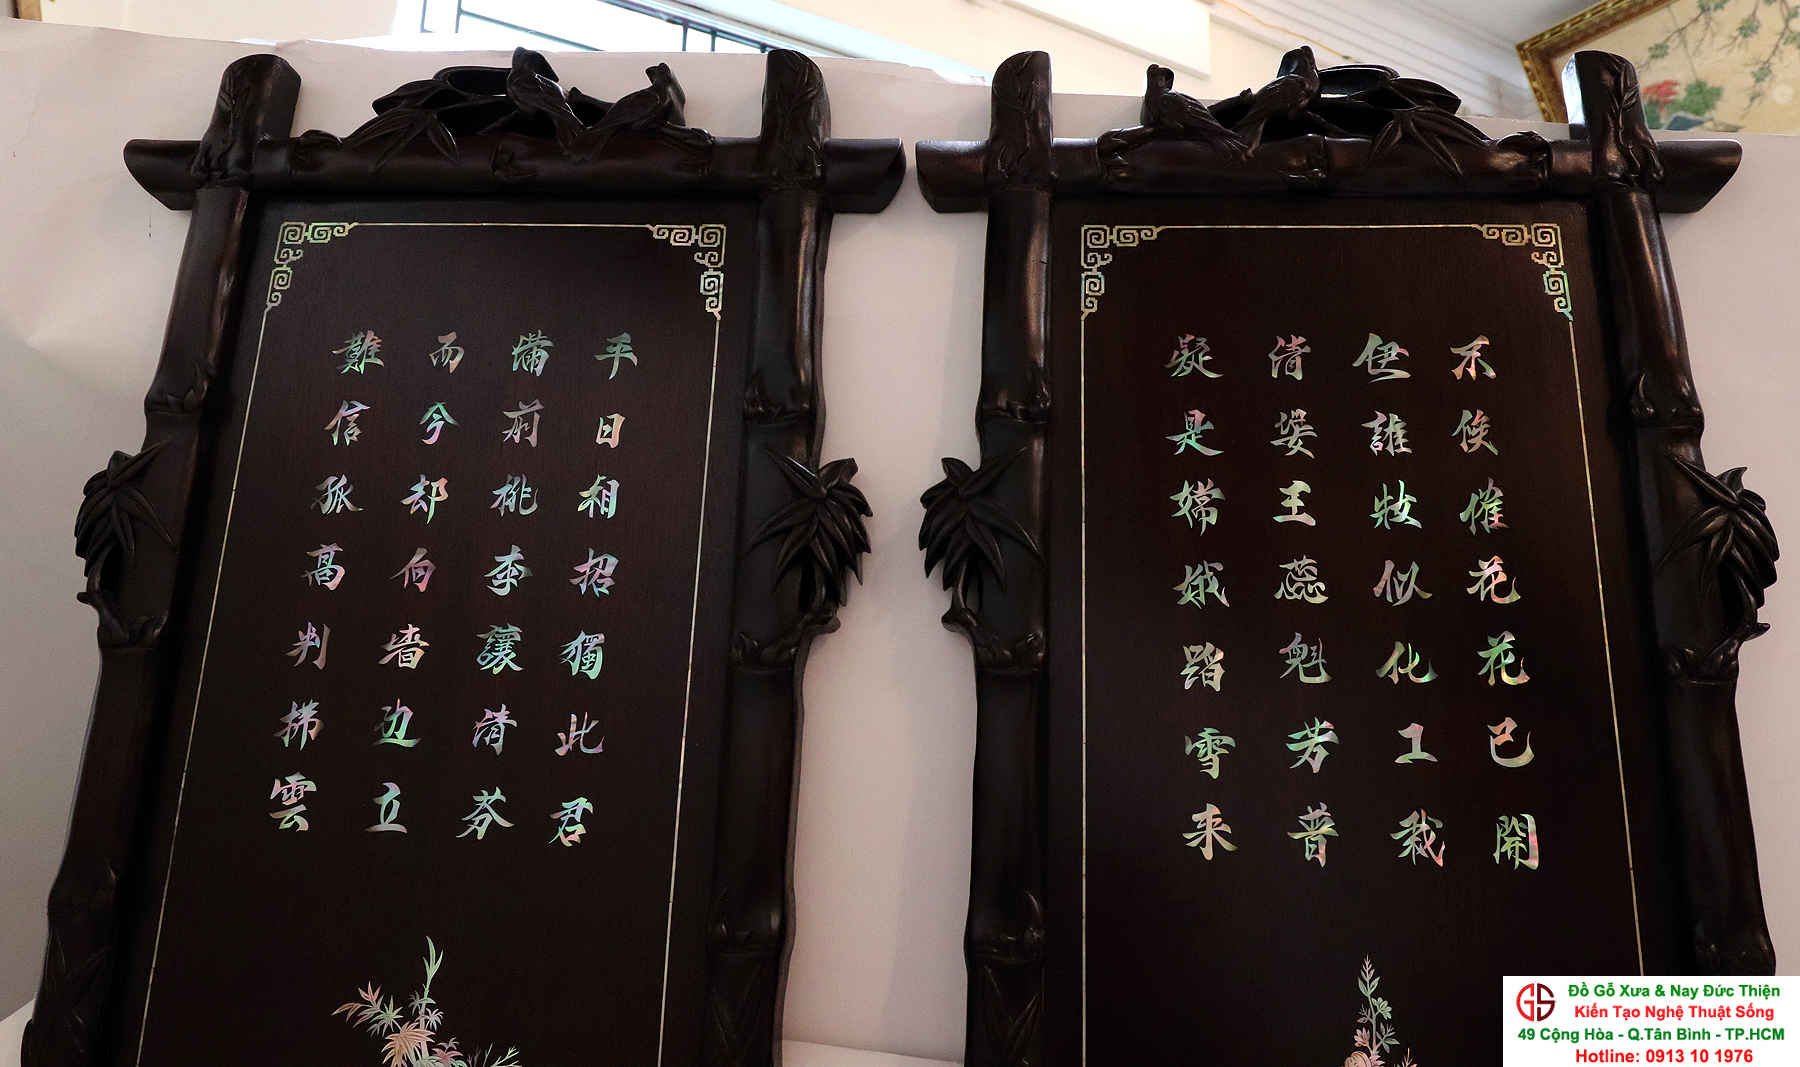 平日相招獨此君
滿前桃李讓清芬
而今却伯墙边立
難信孤高判拂雲
不俟催花花已開
伊誰妝似化工裁
清姿王蕊魁芳普
凝是嫦娥踏雪来
Đồ Gỗ Xưa & Nay Đức Thiện
Kiến Tạo Nghệ Thuật Sống
49 Cộng Hòa - Q.Tân Bình - TP.HCM
Hotline: 0913 10 1976